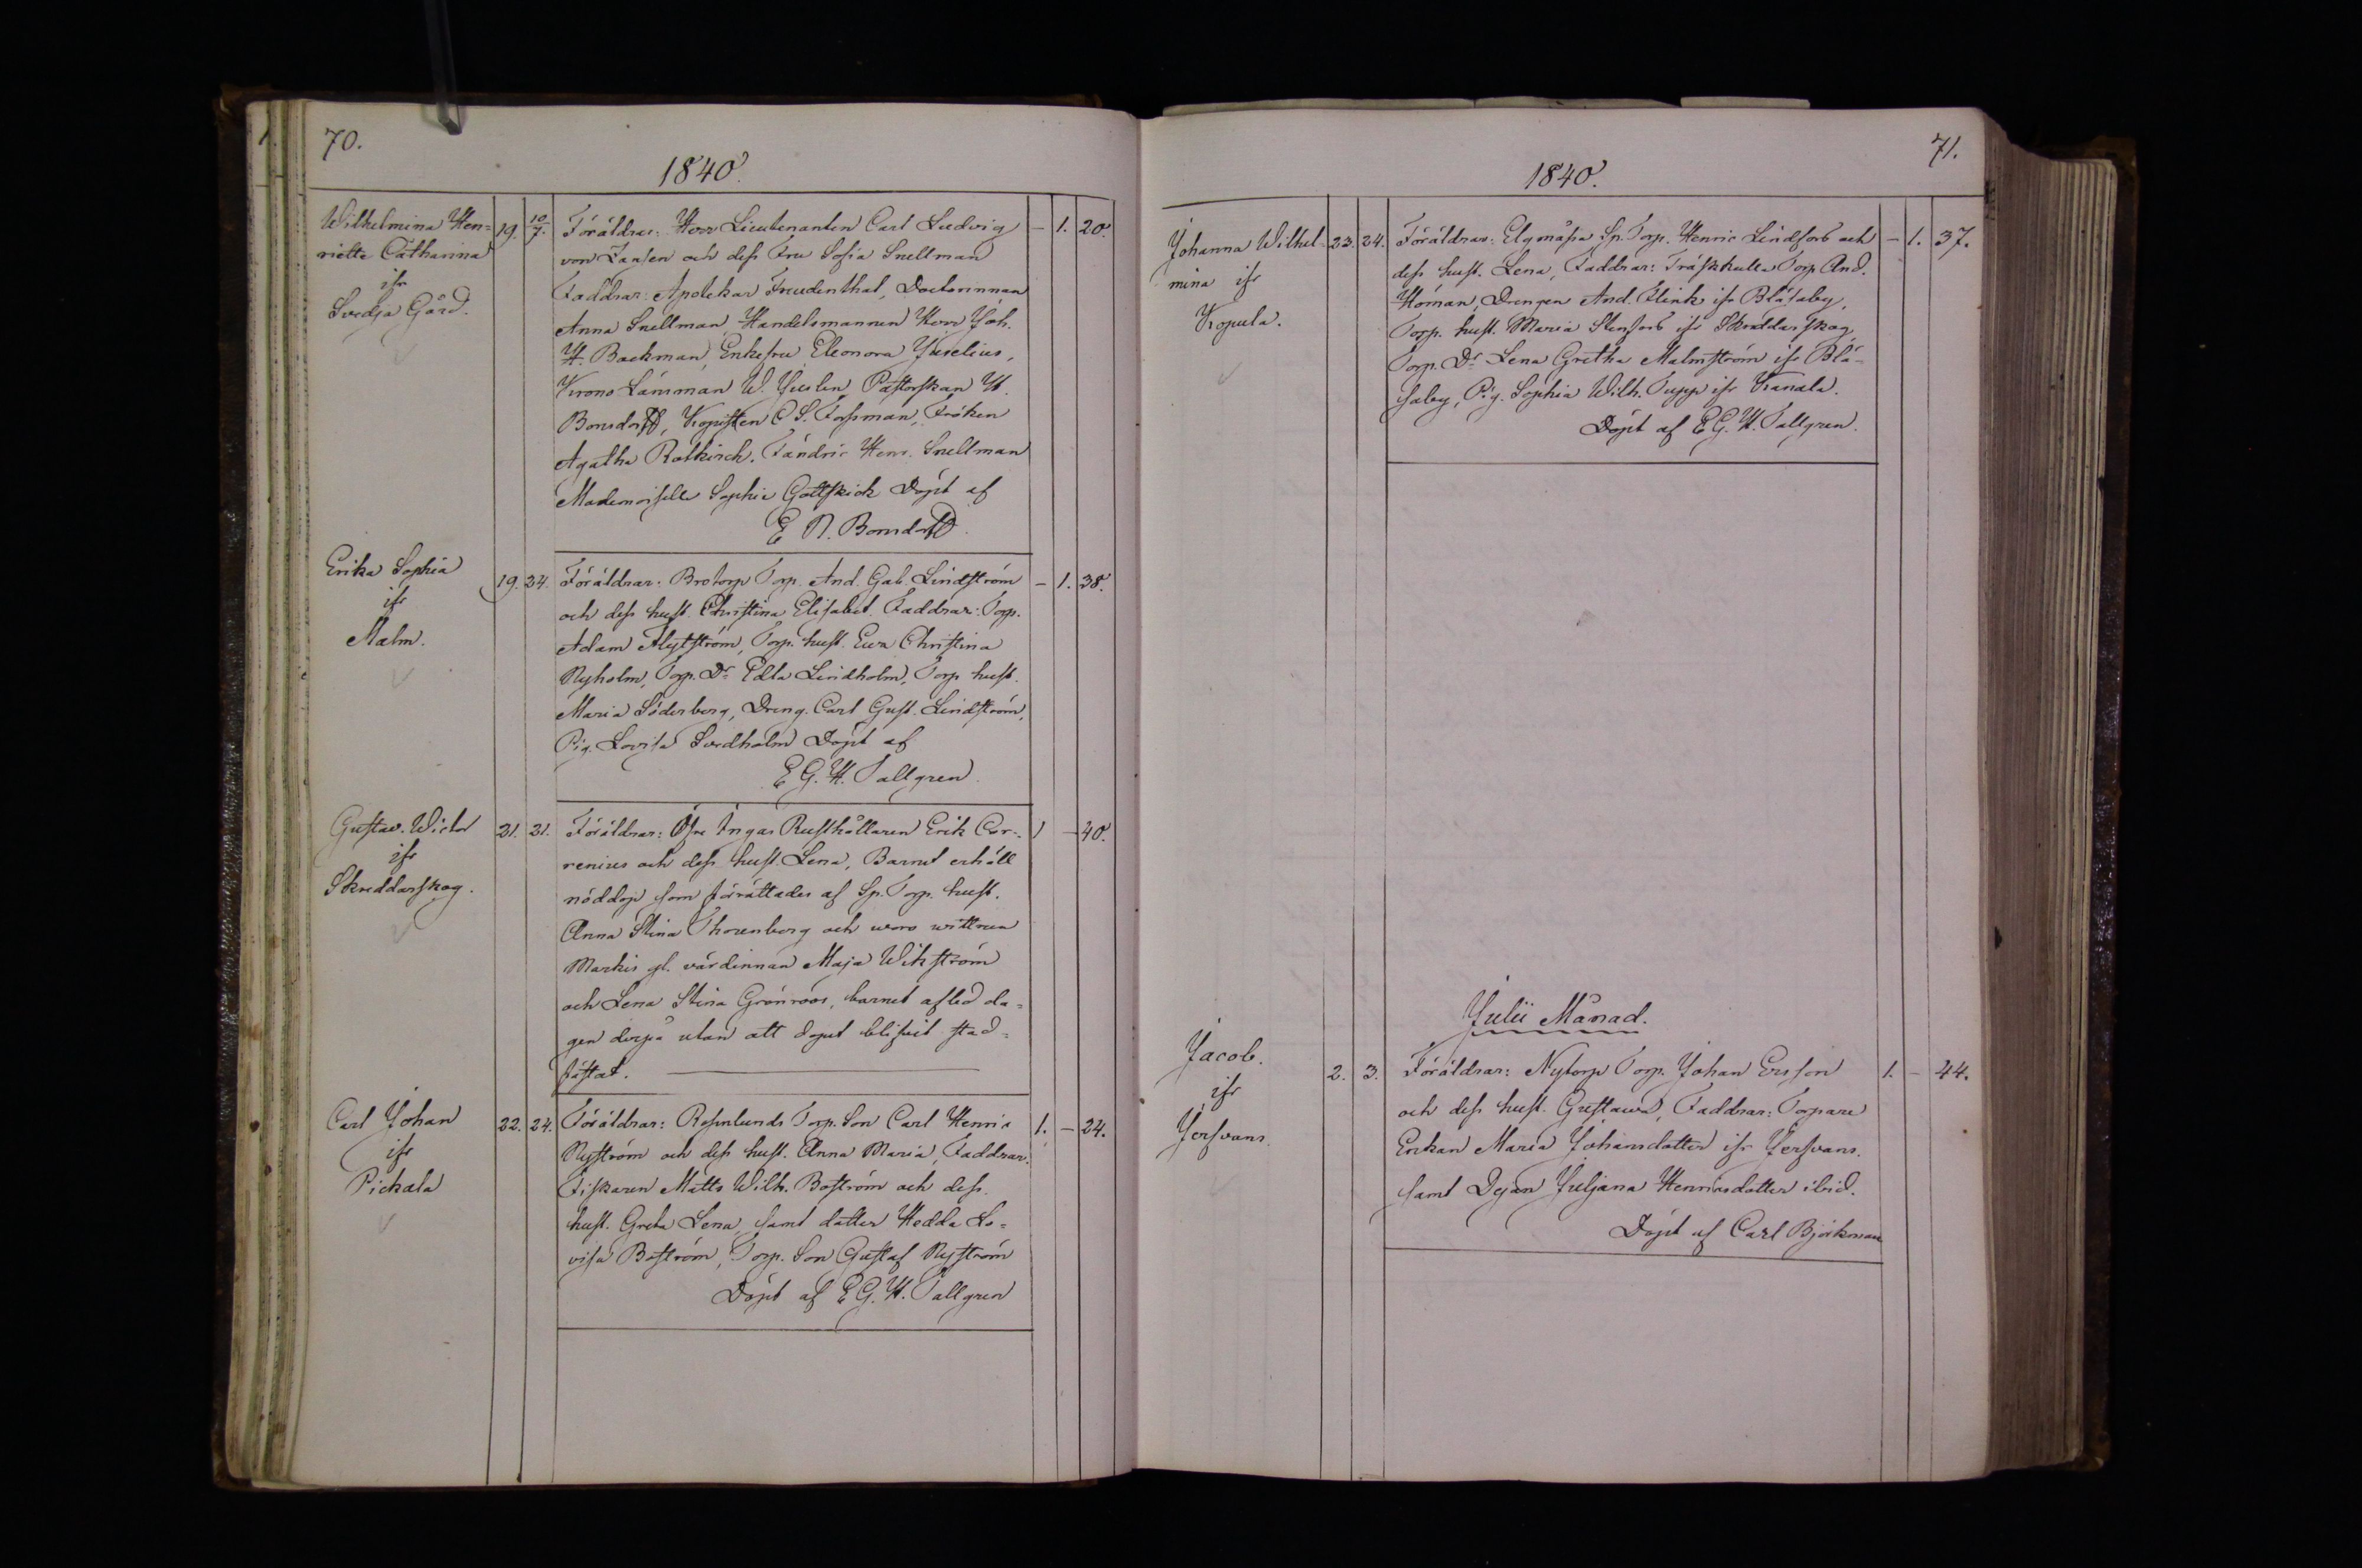 70.
1840.
Wilhelmina Hen=
riette Catharina
ifr
Svedja Gård.
19. 10/7. Föräldrar: Herr Lieutenanten Carl Ludvig — 1. 20.
von Jansen och dess Fru Sofia Snellman
Faddrar: Apotekar Freudenthal, Doctorinnan
Anna Snellman, Handelsmannen Herr Joh.
H. Backman, Enkefru Eleonora Juselius,
Krono Länsman W. Juslin, Pastorskan H.
Bonsdorff, Kopisten C S. Forssman, Fröken
Agatha Rotkirch. Fändric Henr. Snellman
Mademoiselle Sophie Gottskick Döpt af
E N. Bonsdorff.
Erika Sophia
ifr
Malm.
19. 24. Föräldrar: Brotorp Torp. And. Gab. Lindström — 1. 38.
och dess hust. Christina Elisabet. Faddrar: Torp.
Adam Flytström, Torp. hust. Eva Christina
Nyholm, Torp. Dr Edla Lindholm, Torp hust.
Maria Söderberg, Dreng. Carl Gust. Lindström,
Pig. Lovisa Svedholm Döpt af
E G. H. Tallgren.
Gustav. Wictor
ifr
Skreddarskog.
21. 21. Föräldrar: Öfre Ingas Rusthållaren Erik Cor- 1 — 40.
renius och dess hust. Lena, Barnet erhöll
nöddop som förrättades af Sp. Torp. hust.
Anna Stina Thorenberg och woro wittnen
Markis gl. värdinnan Maja Wikström
och Lena Stina Grönroos, barnet afled da=
gen derpå utan att dopet blifvit stad=
fästat.
Carl Johan
ifr
Pickala
22. 24. Föräldrar: Rosenlunds Torp. Son Carl Henric 1. — 24.
Nyström och dess hust. Anna Maria, Faddrar:
Fiskaren Matts Wilh. Boström och dess
hust. Greta Lena, samt dotter Hedda Lo=
visa Boström, Torp. Son Gustaf Nyström
Döpt af E G. H. Tallgren
71.
1840.
Johanna Wilhel
mina ifr
Kopula.
23. 24. Föräldrar: Elgmåsa Sp. Torp. Henric Lindfors och — 1. 37.
dess hust. Lena, Faddrar: Träskkulla Torp And.
Höman, Drengen And. Flink ifr Blåsaby,
Torp. hust. Maria Stenfors ifr Skräddarskog,
Torp. Dr Lena Gretha Malmström ifr Blå-
saby, Pig. Sophia Wilh. Tupp ifr Kanala.
Döpt af E G. H. Tallgren.
Julii Månad.
Jacob.
ifr
Jersvans.
2. 3. Föräldrar: Nytorp Torp. Johan Ersson 1. — 44.
och dess hust. Gustawa, Faddrar: Torpare
Enkan Maria Johansdotter ifr Jersvans.
samt Dejan Juljana Henricsdotter ibid.
Döpt af Carl Björkman